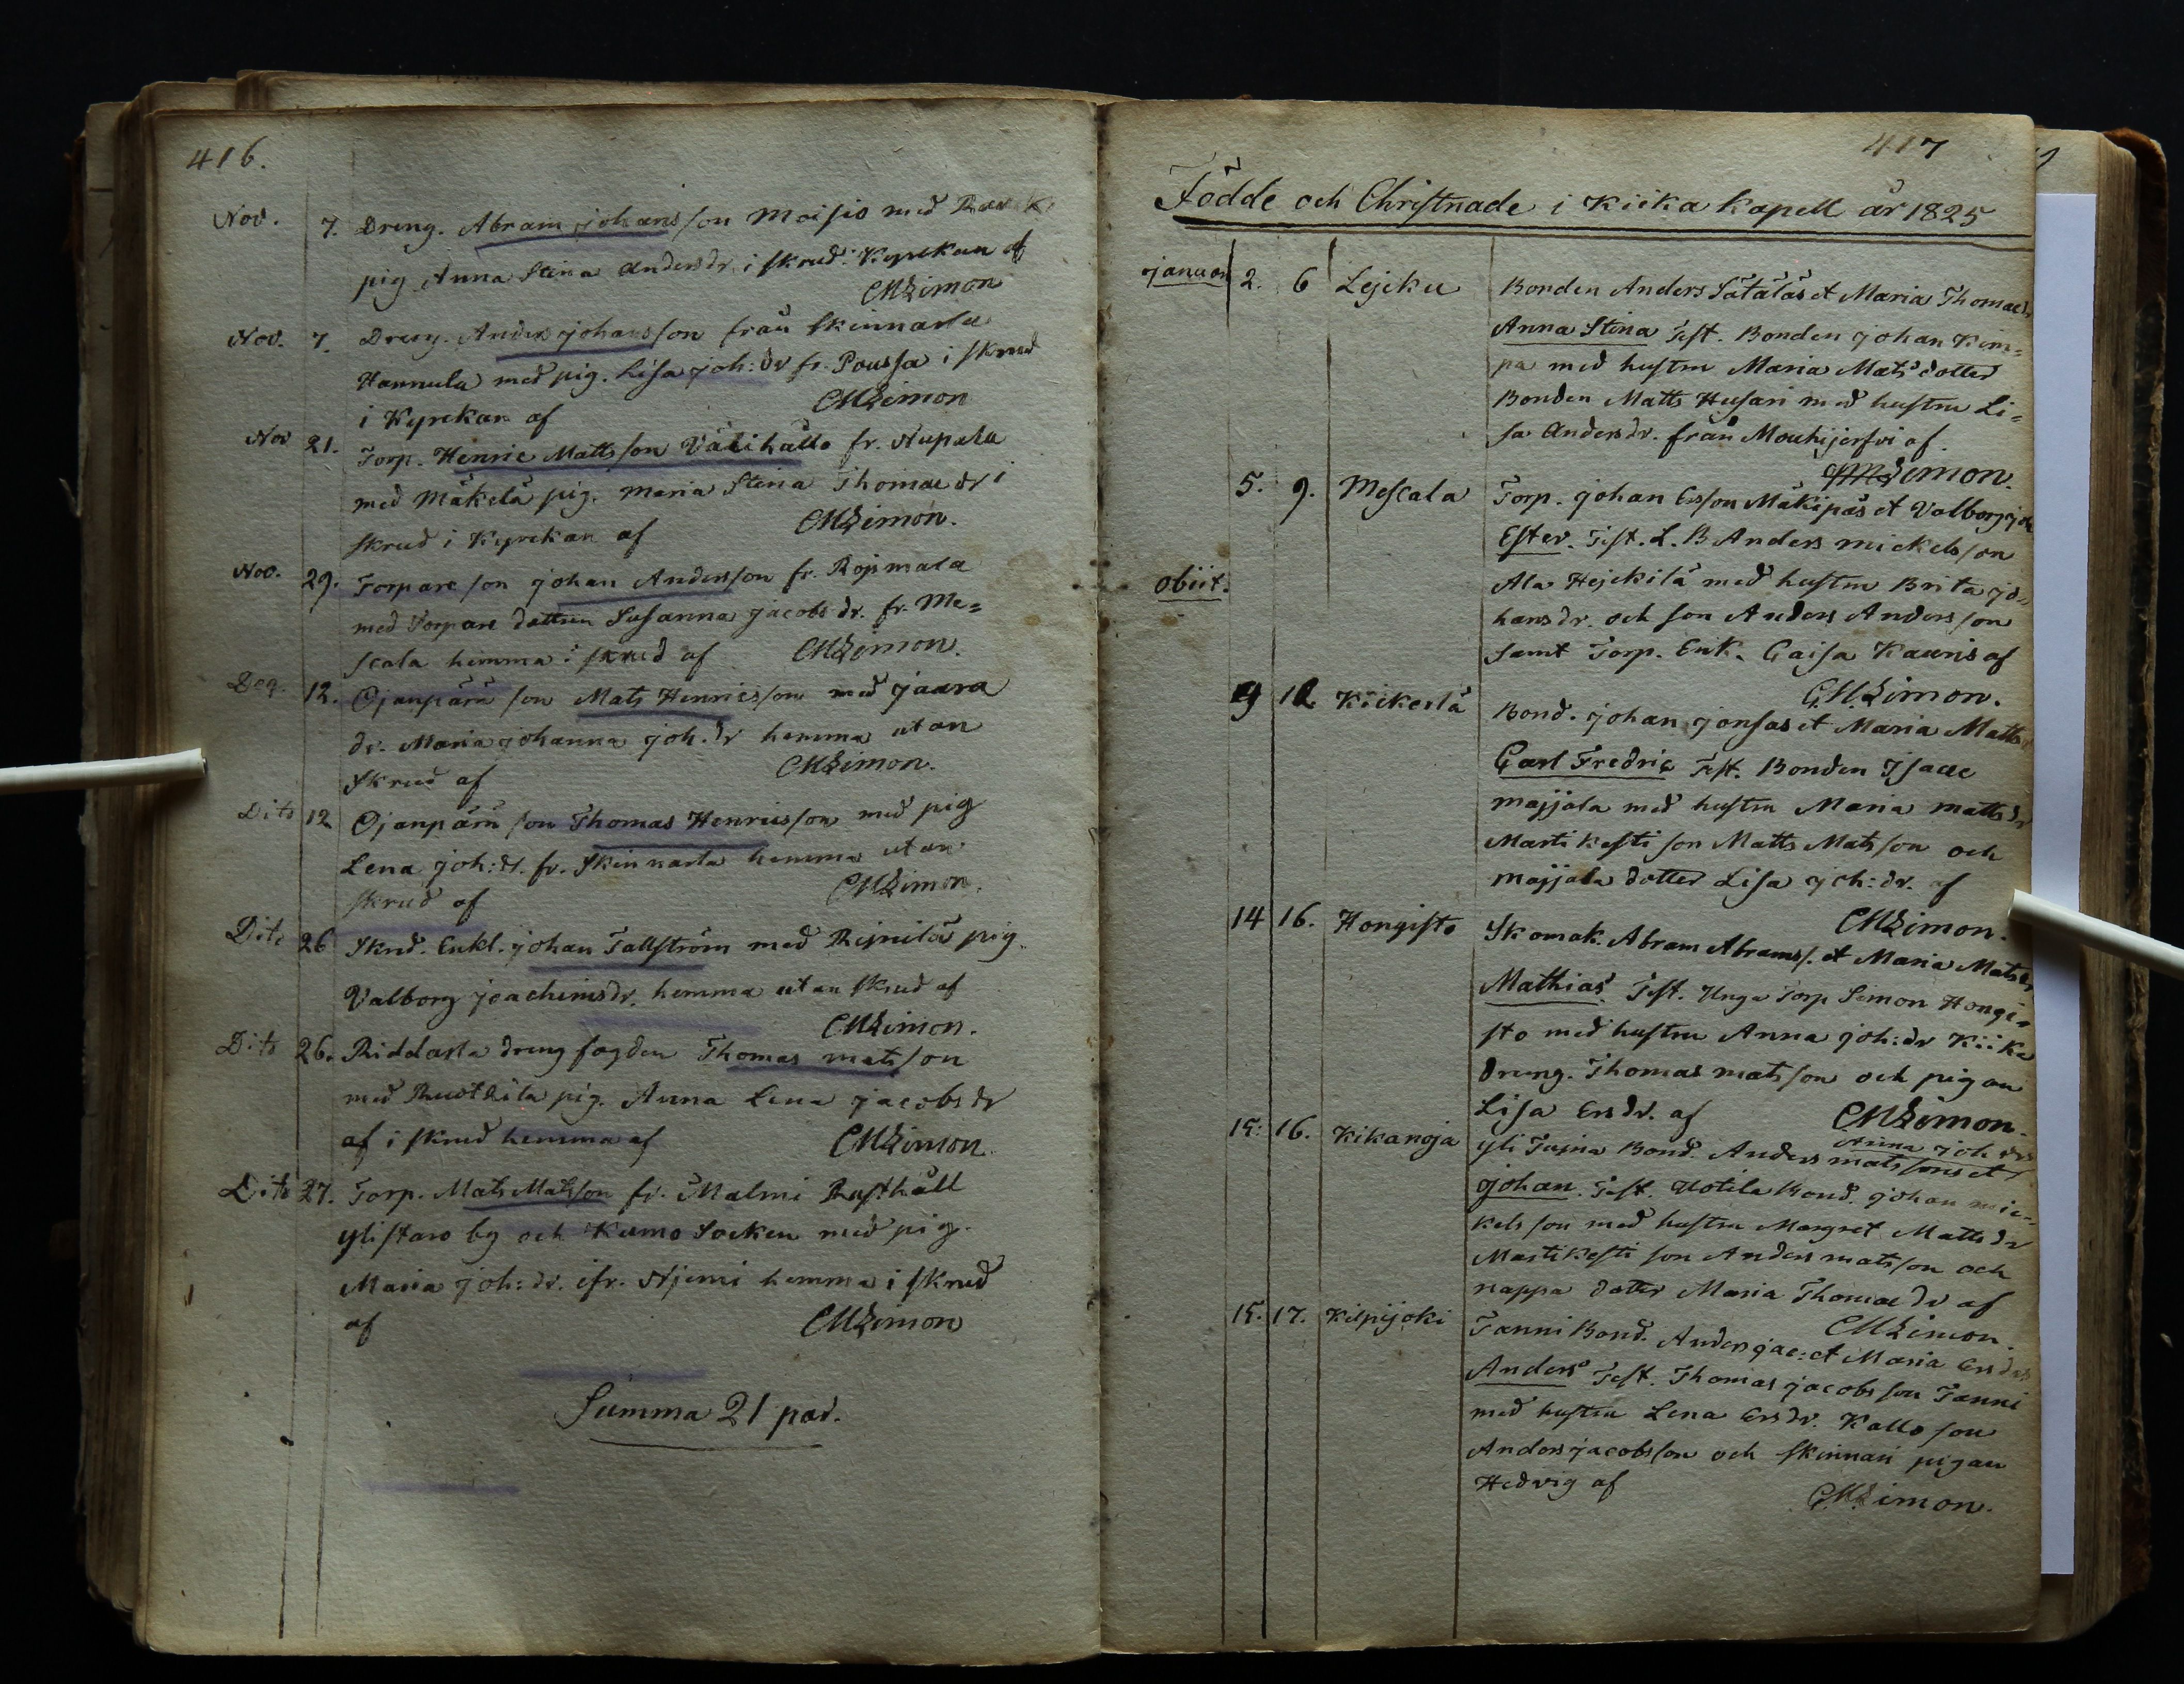 416.
Nov. 7. Dreng. Abram johansson Moisio med
pig Anna Stina Andersdr. i skrud i Kyrckan af
CMLimon
Nov. 7. Dreng. Anders johansson från Skinnarla
Hannula med pig. Lisa joh: dr fr. Poussa i skrud
i Kyrckan af CMLimon
Nov 21. Torp. Henric Mattsson Välihallo fr. Nupala
med Mäkelä pig. Maria Stina Thomae dr i
skrud i Kyrckan af CMLimon.
Nov. 29. Torpare son johan Andersson fr. Rojsmala
med Torpare dottren Susanna jacobs dr. fr. Me=
scala hemma i skrud af CMLimon.
Dec. 12. Ojanpärä son Mats Henricsson med jaara
dr. Maria johanna joh. dr hemma utan
skrud af CMLimon.
Dito 12 Ojanpärä son Thomas Henricsson med pig
Lena joh: dr. fr. Skinnarla hemma utan
skrud af CMLimon.
Dito 26 Skrd. Enkl. johan Tallström med Rejnilä pig.
Valborg joachimsdr. hemma utan skrud af
CMLimon.
Dito 26. Riddarla dreng fogden Thomas matsson
med pig. Anna Lena jacobs dr
af i skrud hemma af CMLimon.
Dito 27. Torp. Mats Matsson fr. Malmi Rusthåll
ylistaro by och Kumo Socken med pig.
Maria joh: dr. ifr. Njemi hemma i skrud
af CMLimon
Summa 21 par.
417
Födde och Christnade i Kiika Kapell år 1825
januari 2. 6 Lejcku Bonden Anders Sätäläs et Maria Thomaedr
Anna Stina Test. Bonden johan Kem=
pa med hustru Maria Mats dotter
Bonden Matts Husari med hustru Li=
sa Andersdr. från Mouhijerfvi af
CMLimon.
5. 9. Mescala Torp. johan Ersson Mäkipäs et Valborg joh
Ester. Test. L. B Anders mickelsson
obiit. Ala Hejckilä med hustru Brita jo=
hansdr. och son Anders Andersson
samt Torp. Enk. Caisa Kauris af
CMLimon.
9 12 Kickerlä Bond. johan jonsas et Maria Matts
Carl Fredric Test. Bonden Isaac
majjala med hustru Maria matts dr
Martikesti son Matts Matsson och
majjala dotter Lisa joh: dr. af
CMLimon.
14 16. Hongisto Skomak. Abram Abrams. et Maria Matsdr
Mathias. Test. Unga Torp Semon Hongi=
sto med hustru Anna joh: dr Kiika
dreng. Thomas matsson och pigan
Lisa Ersdr. af CMLimon.
15: 16. Kikanoja yli Bond. Anders matssons et Anna joh drs
johan. Test. Uotila Bond. johan mic=
kelsson med hustru Margret Matts dr
Martikesti son Anders matsson och
nappa dotter Maria Thomae dr af
CMLimon.
15. 17. Kilpijoki Tanni Bond. Anders jac: et Maria Ers drs
Anders Test. Thomas jacobsson Tanni
med hustru Lena Ersdr. Kallo son
Anders jacobsson och Skinnari pigan
Hedvig af CMLimon.